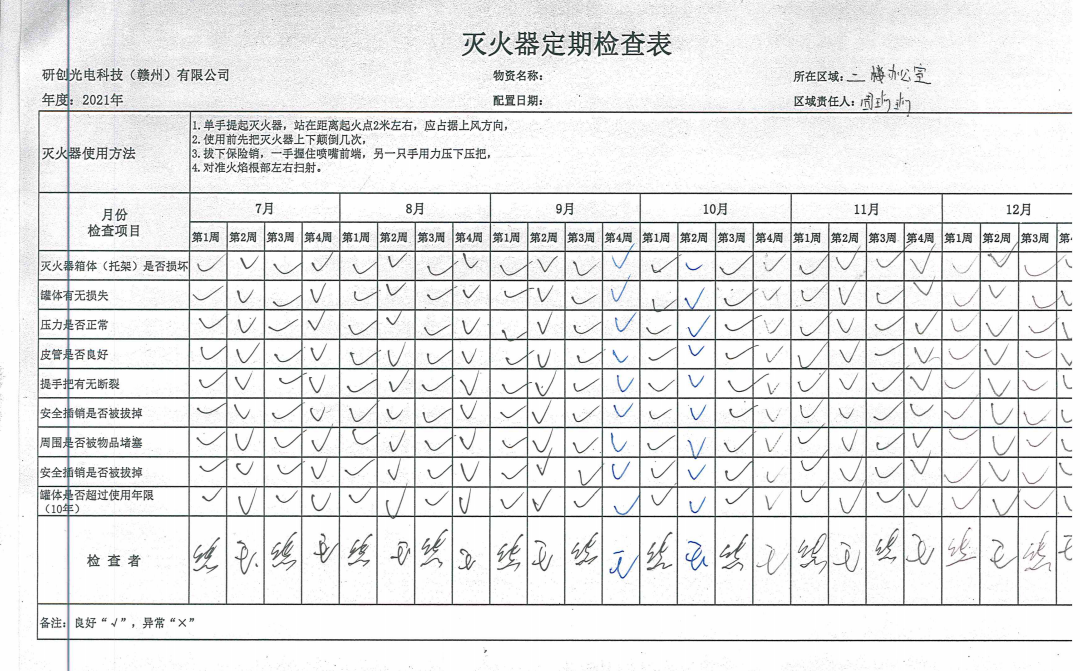 灭火器定期检查表
研创光电科技（赣州）有限公司 物资名称： 所在区域：二楼办公室
年度：2021年 配置日期： 区域责任人：
灭火器使用方法
1.单手提起灭火器，站在距离起火点2米左右，应占据上风方向，
2.使用前先把灭火器上下颠倒几次，
3.拔下保险销，一手握住喷嘴前端，另一只手用力压下压把，
4.对准火焰根部左右扫射。
月份 7月 8月 9月 10月 11月 12月
检查项目 第1周 第2周 第3周 第4周 第1周 第2周 第3周 第4周 第1周 第2周 第3周 第4周 第1周 第2周 第3周 第4周 第1周 第2周 第3周 第4周 第1周 第2周 第3周
灭火器箱体（托架）是否损坏 ✓ ✓ ✓ ✓ ✓ ✓ ✓ ✓ ✓ ✓ ✓ ✓ ✓ ✓ ✓ ✓ ✓ ✓ ✓ ✓ ✓ ✓ ✓ ✓
罐体有无损失 ✓ ✓ ✓ ✓ ✓ ✓ ✓ ✓ ✓ ✓ ✓ ✓ ✓ ✓ ✓ ✓ ✓ ✓ ✓ ✓ ✓ ✓ ✓ ✓
压力是否正常 ✓ ✓ ✓ ✓ ✓ ✓ ✓ ✓ ✓ ✓ ✓ ✓ ✓ ✓ ✓ ✓ ✓ ✓ ✓ ✓ ✓ ✓ ✓ ✓
皮管是否良好 ✓ ✓ ✓ ✓ ✓ ✓ ✓ ✓ ✓ ✓ ✓ ✓ ✓ ✓ ✓ ✓ ✓ ✓ ✓ ✓ ✓ ✓ ✓ ✓
提手把有无断裂 ✓ ✓ ✓ ✓ ✓ ✓ ✓ ✓ ✓ ✓ ✓ ✓ ✓ ✓ ✓ ✓ ✓ ✓ ✓ ✓ ✓ ✓ ✓ ✓
安全插销是否被拔掉 ✓ ✓ ✓ ✓ ✓ ✓ ✓ ✓ ✓ ✓ ✓ ✓ ✓ ✓ ✓ ✓ ✓ ✓ ✓ ✓ ✓ ✓ ✓ ✓
周围是否被物品堵塞 ✓ ✓ ✓ ✓ ✓ ✓ ✓ ✓ ✓ ✓ ✓ ✓ ✓ ✓ ✓ ✓ ✓ ✓ ✓ ✓ ✓ ✓ ✓ ✓
安全插销是否被拔掉 ✓ ✓ ✓ ✓ ✓ ✓ ✓ ✓ ✓ ✓ ✓ ✓ ✓ ✓ ✓ ✓ ✓ ✓ ✓ ✓ ✓ ✓ ✓ ✓
罐体是否超过使用年限 ✓ ✓ ✓ ✓ ✓ ✓ ✓ ✓ ✓ ✓ ✓ ✓ ✓ ✓ ✓ ✓ ✓ ✓ ✓ ✓ ✓ ✓ ✓ ✓
（10年）
检查者
备注：良好“√”，异常“×”